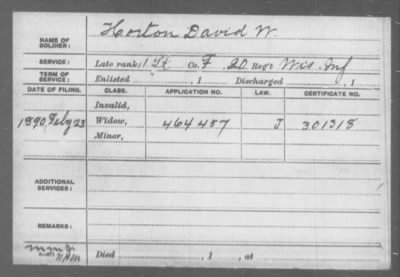 NAME OF SOLDIER: Horton David W.
SERVICE: Late rank, 1 Lt Co. F, 20 Reg't Wis. Inf
TERM OF SERVICE: Enlisted , 1 Discharged , 1
DATE OF FILING. CLASS. APPLICATION NO. LAW. CERTIFICATE NO.
Invalid,
1890 Feby 23 Widow, 464457 J 301318
Minor,
ADDITIONAL SERVICES:
REMARKS:
Died , 1 , at